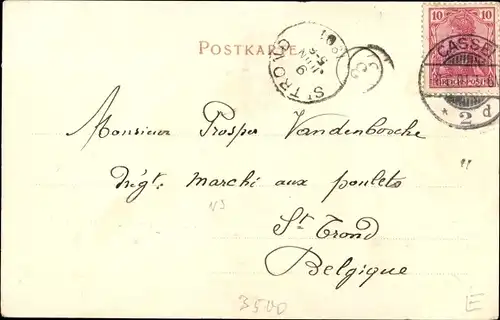 POSTKARTE
10
REICHSPOST
CASSEL
* 2 d
ST TROND
9
JUIN
5-6
1901
Monsieur Prosper Vandenbossche
Négt. marché aux poulets
St Trond
Belgique
3500
E